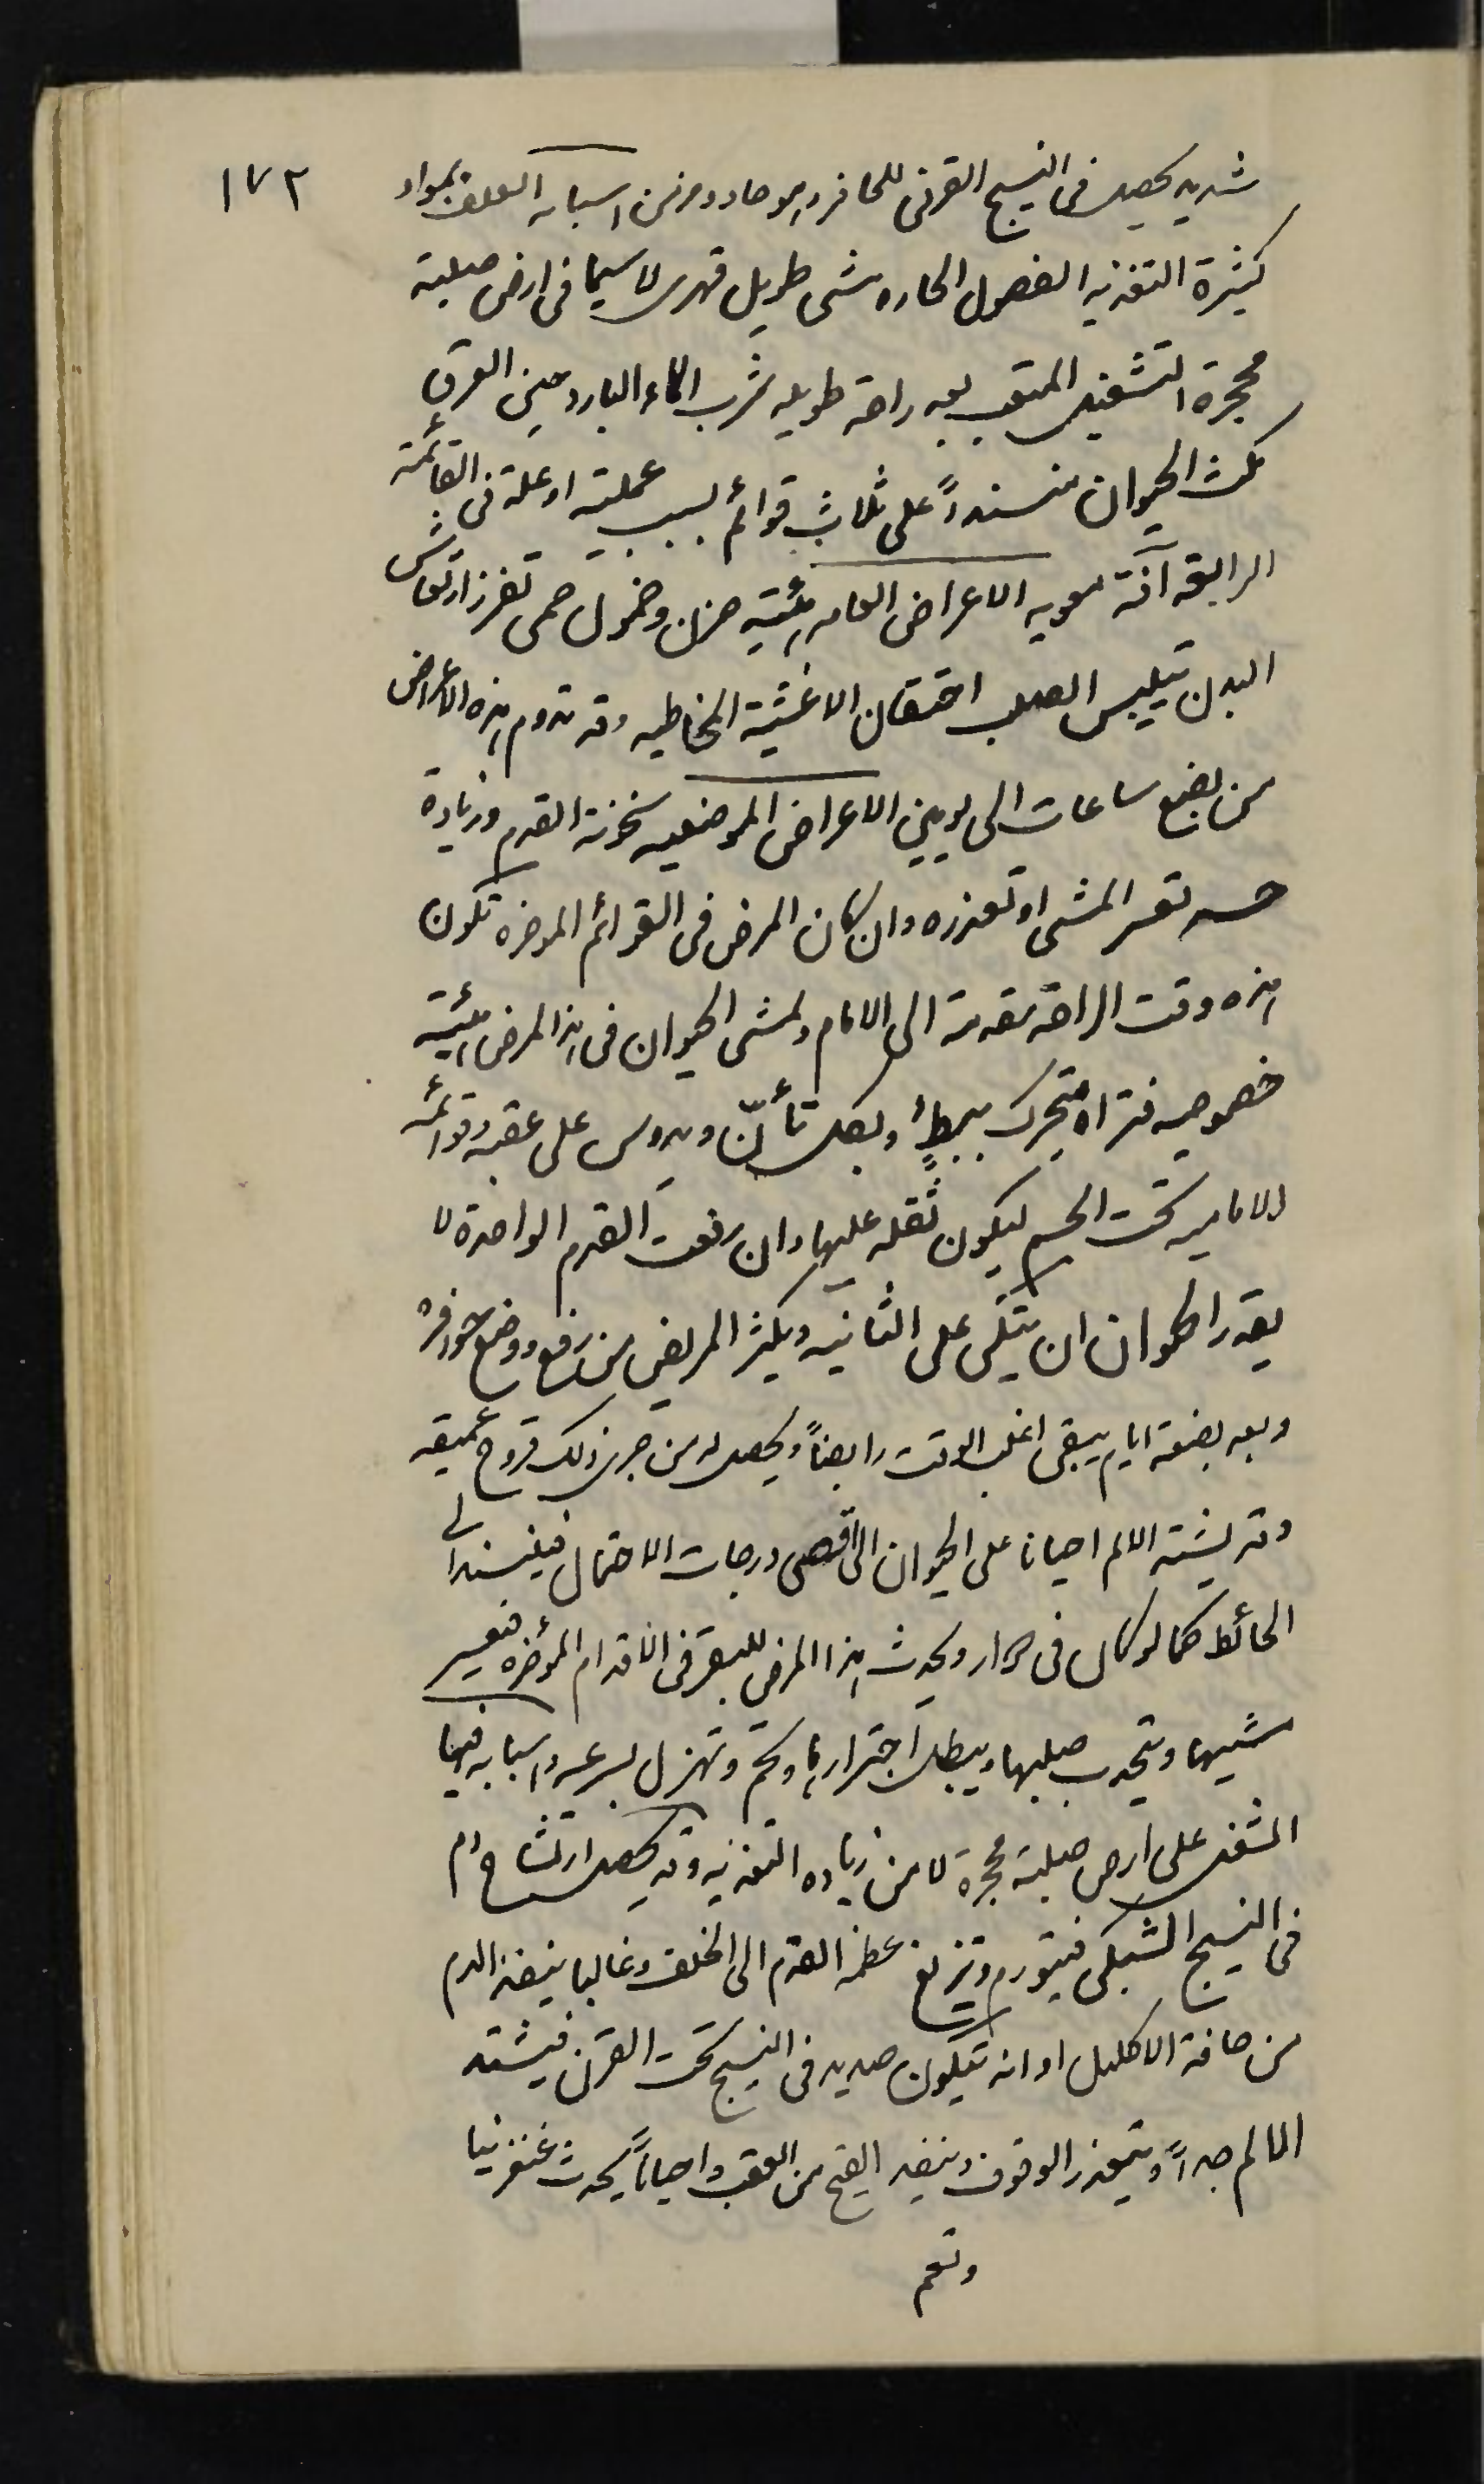 ١٧٢
شديد يحصل فى النسيج القرنى للحافر وهو حاد ومزمن اسبابه العلف بمواد
كثيرة التغذيه الفصول الحاره مشى طويل قهرى لا سيما فى ارض صلبة
محجرة التشغيل المتعب بعد راحة طويله شرب الماء البارد حين العرق
مكث الحيوان مستنداً على ثلاث قوائم بسبب عملية او علة فى القائمة
الرابعة آفة معويه الاعراض العامه هئية حزن وخمول حمى تفزز ارتعاش
البدن تيليس الصلب احتقان الاغشية المخاطيه وقد تدوم هذه الاعراض
من بضع ساعات الى يومين الاعراض الموضعيه سخونة القدم وزيادة
حسه تعسر المشى او تعذره وان كان المرض فى القوائم الموخره تكون
هذه وقت الراحة مقدمة الى الامام ويمشى الحيوان فى هذا المرض هئية
خصوصيه فتراه يتحرك ببطٍ وبكل تأنّ ويدوس على عقبه وقوائمه
الاماميه تحت الجسم ليكون ثقله عليها وان رفعت القدم الواحدة لا
يقدر الحيوان ان يتكى على الثانيه ويكثر المريض من رفع ووضع حوافره
وبعد بضعة ايام يبقى اغلب الوقت رابضاً ويحصل له من جرى ذلك قروح عميقه
وقد يشتد الالم احيانا على الحيوان الى اقصى درجات الاحتمال فيستند الى
الحائط كما لو كان فى دوار ويحدث هذا المرض للبقر فى الاقدام المؤخره فيعسر
مشيها ويتحدب صلبها ويبطل اجترارها وتحم وتهزل بسرعه واسبابه فيها
الشغل على ارض صلبة محجرة لا من زياده التغذيه وقد يحصل ارتشاح دم
فى النسيج الشبكى فيتورم وتزيغ عظمة القدم الى الخلف وغالبا ينفذ الدم
من حافة الاكليل او انه يتكون صديد فى النسيج تحت القرن فيشتد
الالم جداً ويتعذر الوقوف وينفذ القيح من العقب واحياناً يحدث غنغرينا
وتعم